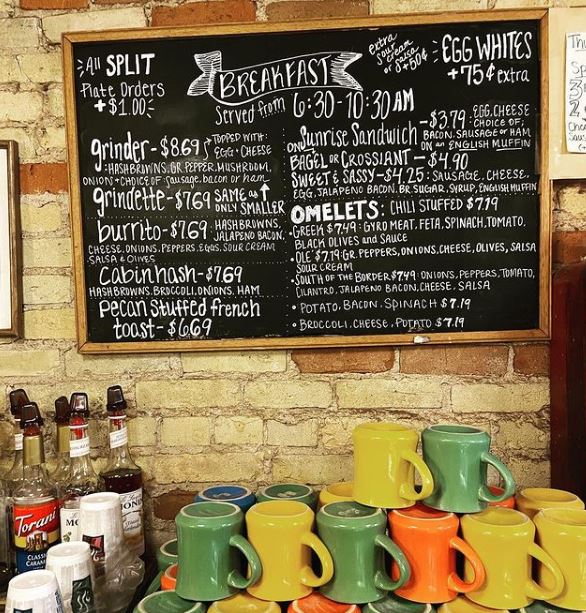 All SPLIT
Plate Orders
+$1.00
BREAKFAST
Served from 6:30-10:30 AM
extra
sour
cream
or salsa
+50¢
EGG WHITES
+75¢ extra
grinder-$8.69 TOPPED WITH:
EGG + CHEESE
HASHBROWNS, GR. PEPPER, MUSHROOM,
ONION + CHOICE OF: Sausage, bacon or ham
grindette-$7.69 SAME AS ↑
ONLY SMALLER
burrito-$7.69 HASHBROWNS,
JALAPENO BACON,
CHEESE, ONIONS, PEPPERS, EGGS, SOUR CREAM
SALSA & OLIVES
Cabinhash-$7.69
HASHBROWNS, BROCCOLI, ONIONS, HAM
Pecan Stuffed french
toast-$6.69
Sunrise Sandwich-$3.79 EGG, CHEESE
CHOICE OF;
BACON, SAUSAGE or HAM
ON an ENGLISH MUFFIN
ON BAGEL OR CROSSIANT-$4.90
SWEET & SASSY-$4.25: SAUSAGE, CHEESE,
EGG, JALAPENO BACON, BR. SUGAR, SYRUP, ENGLISH MUFFIN
OMELETS: CHILI STUFFED $7.19
• GREEK $7.49: GYRO MEAT, FETA, SPINACH, TOMATO,
BLACK OLIVES and SAUCE
• OLE' $7.19: GR. PEPPERS, ONIONS, CHEESE, OLIVES, SALSA
SOUR CREAM
• SOUTH OF THE BORDER $7.49: ONIONS, PEPPERS, TOMATO,
CILANTRO, JALAPENO BACON, CHEESE, SALSA
• POTATO, BACON, SPINACH $7.19
• BROCCOLI, CHEESE, POTATO $7.19
Torani
CLASSIC
CARAMEL